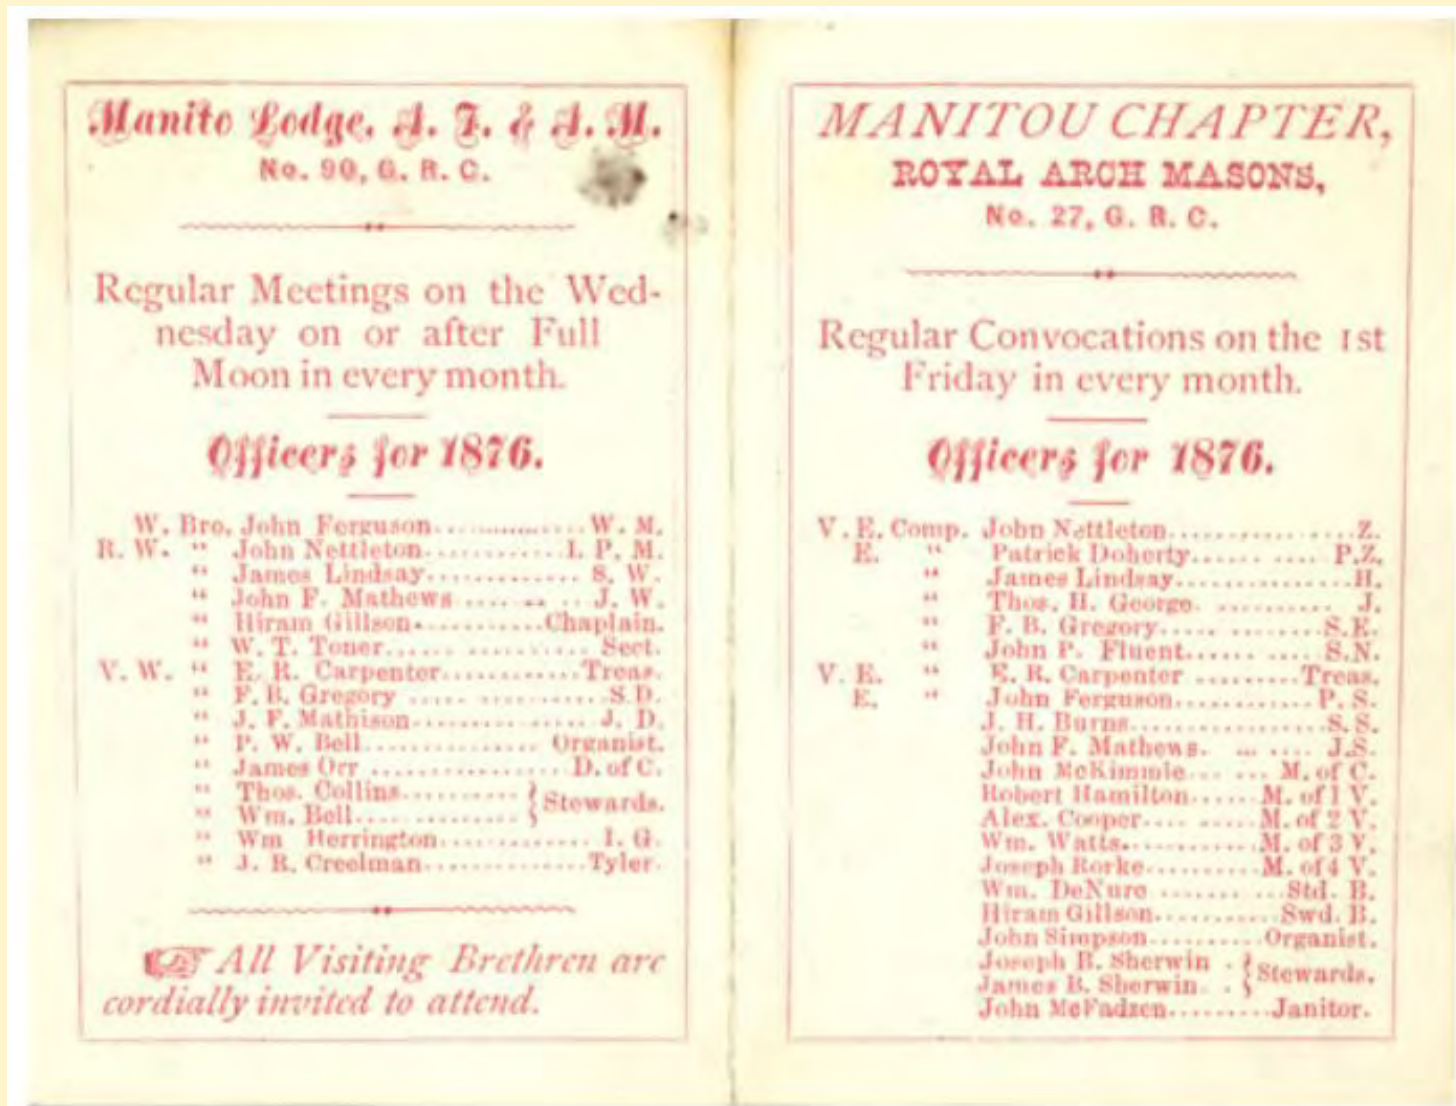 Manito Lodge, A. F. & A. M.
No. 90, G. R. C.
Regular Meetings on the Wed-
nesday on or after Full
Moon in every month.
Officers for 1876.
W. Bro. John Ferguson.................. W. M.
R. W. “ John Nettleton.............. I. P. M.
“ James Lindsay............. S. W.
“ John F. Mathews ........ J. W.
“ Hiram Gillson...........Chaplain.
“ W. T. Toner................ Sect.
V. W. “ E. R. Carpenter............Treas.
“ F. B. Gregory ..............S.D.
“ J. F. Mathison.............. J. D.
“ P. W. Bell............... Organist.
“ James Orr ................D. of C.
“ Thos. Collins.......... } Stewards.
“ Wm. Bell...............
“ Wm Herrington............. I. G.
“ J. R. Creelman............Tyler.
All Visiting Brethren are
cordially invited to attend.
MANITOU CHAPTER,
ROYAL ARCH MASONS,
No. 27, G. R. C.
Regular Convocations on the 1st
Friday in every month.
Officers for 1876.
V. E. Comp. John Nettleton................Z.
E. “ Patrick Doherty........... P.Z.
“ James Lindsay...............H.
“ Thos. H. George. .......... J.
“ F. B. Gregory..............S.E.
“ John P. Fluent...........S.N.
V. E. “ E. R. Carpenter .........Treas.
E. “ John Ferguson............P. S.
J. H. Burns.................S. S.
John F. Mathews. ....... J.S.
John McKimmie...... M. of C.
Robert Hamilton......M. of 1 V.
Alex. Cooper.........M. of 2 V.
Wm. Watts...........M. of 3 V.
Joseph Rorke..........M. of 4 V.
Wm. DeNure ..........Std. B.
Hiram Gillson..........Swd. B.
John Simpson..........Organist.
Joseph B. Sherwin . { Stewards.
James B. Sherwin. .
John McFadzen.........Janitor.